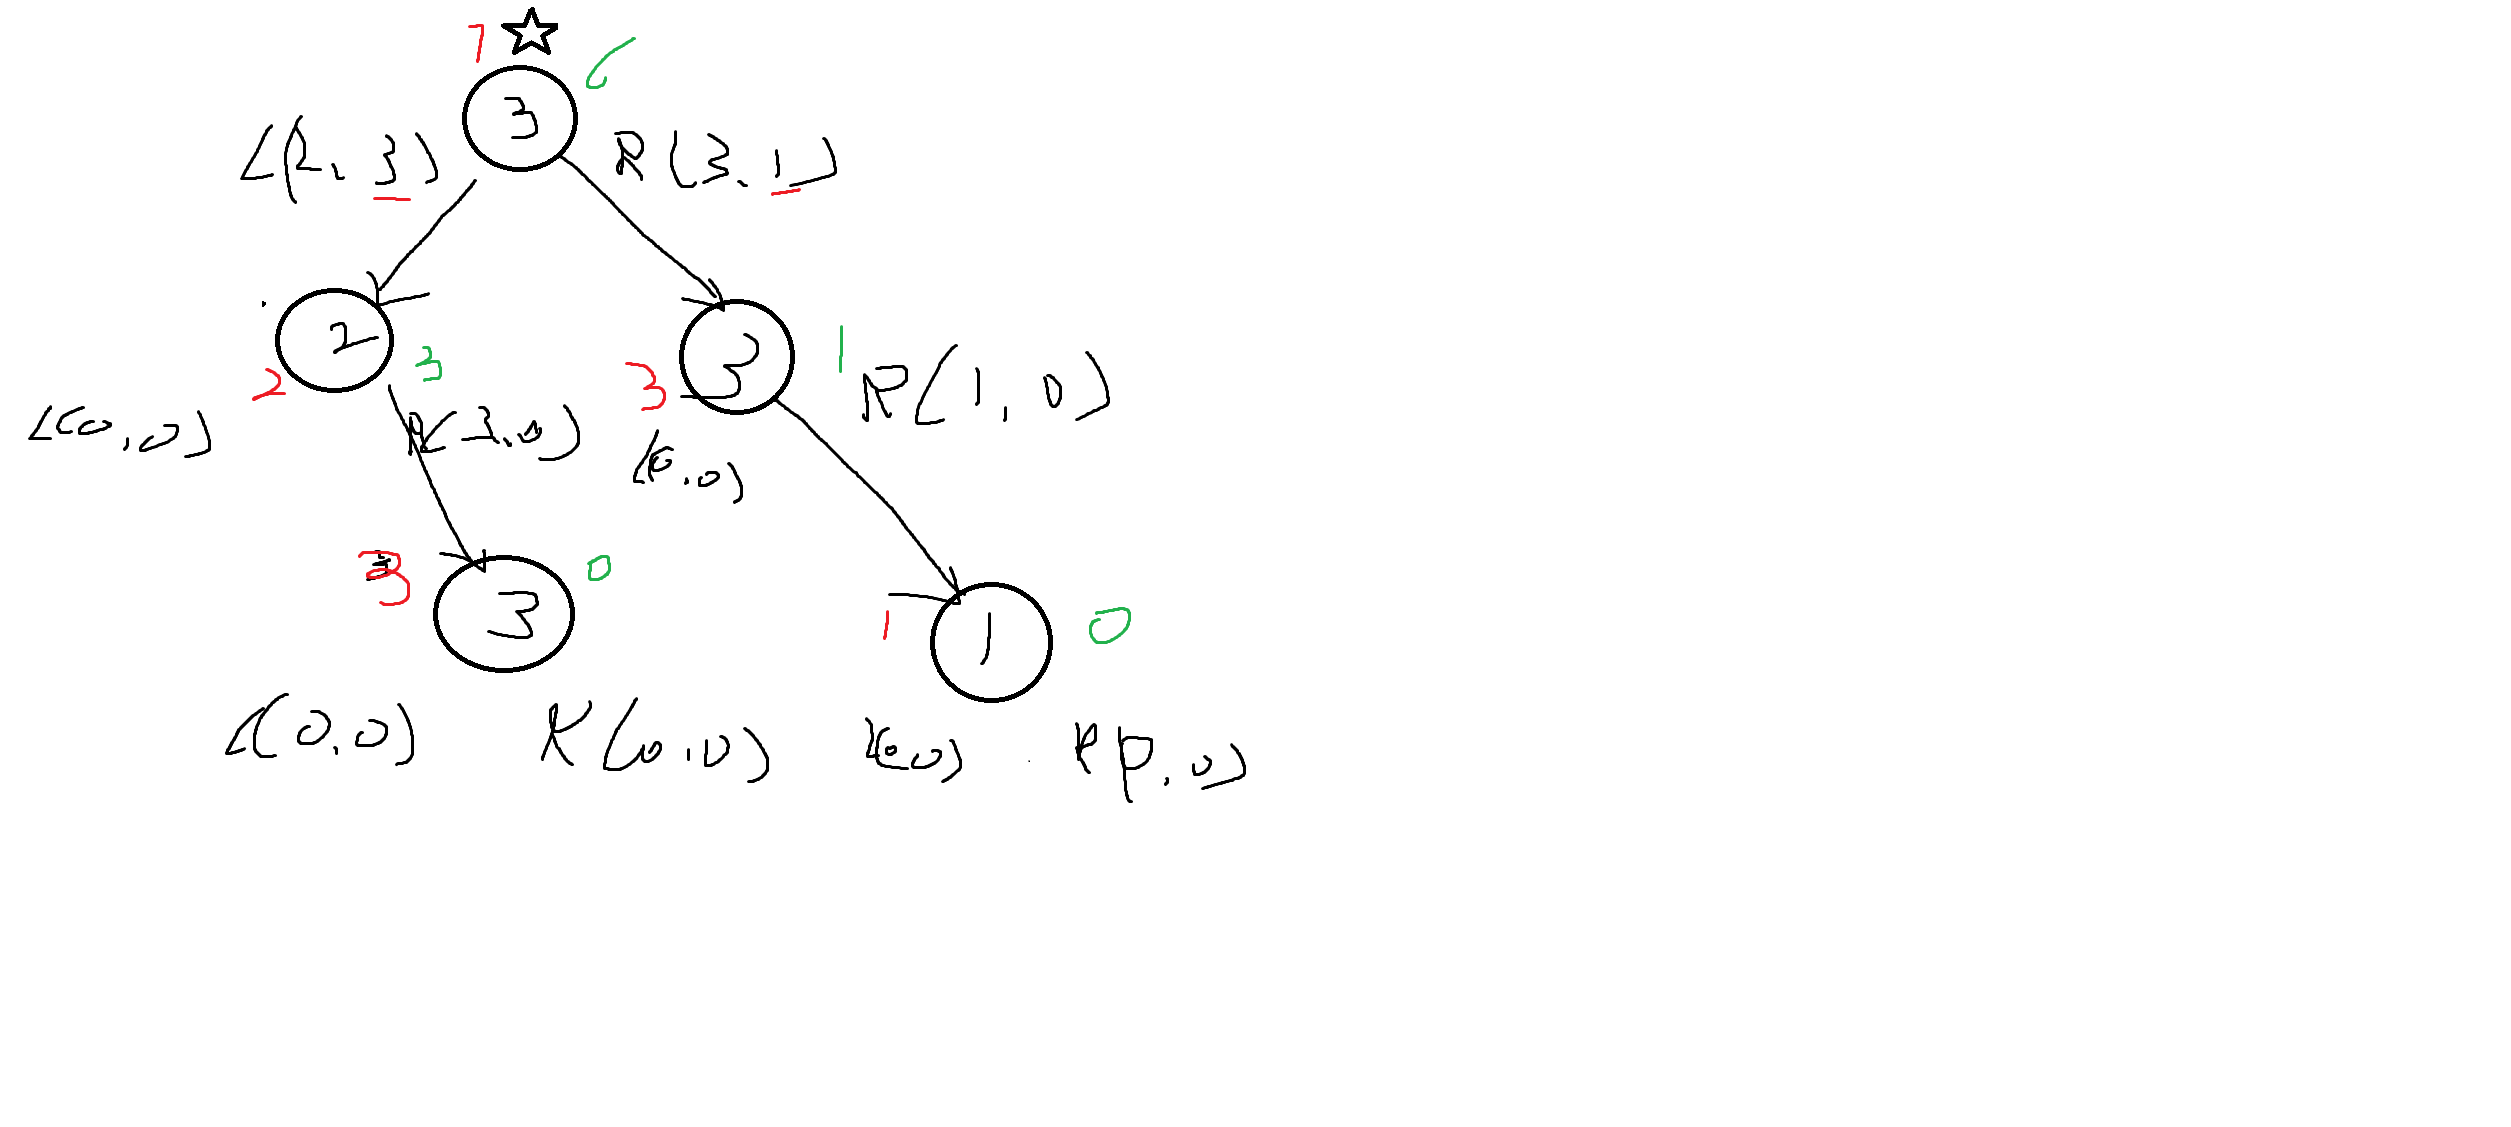 7 6
3
L(2, 3) R(3, 1)
2 3
2 3 3 1
L(0, 0) R(3, 0) L(0, 0) R(1, 0)
3 0
3 1 1 0
L(0, 0) R(0, 0) L(0, 0) R(0, 0)